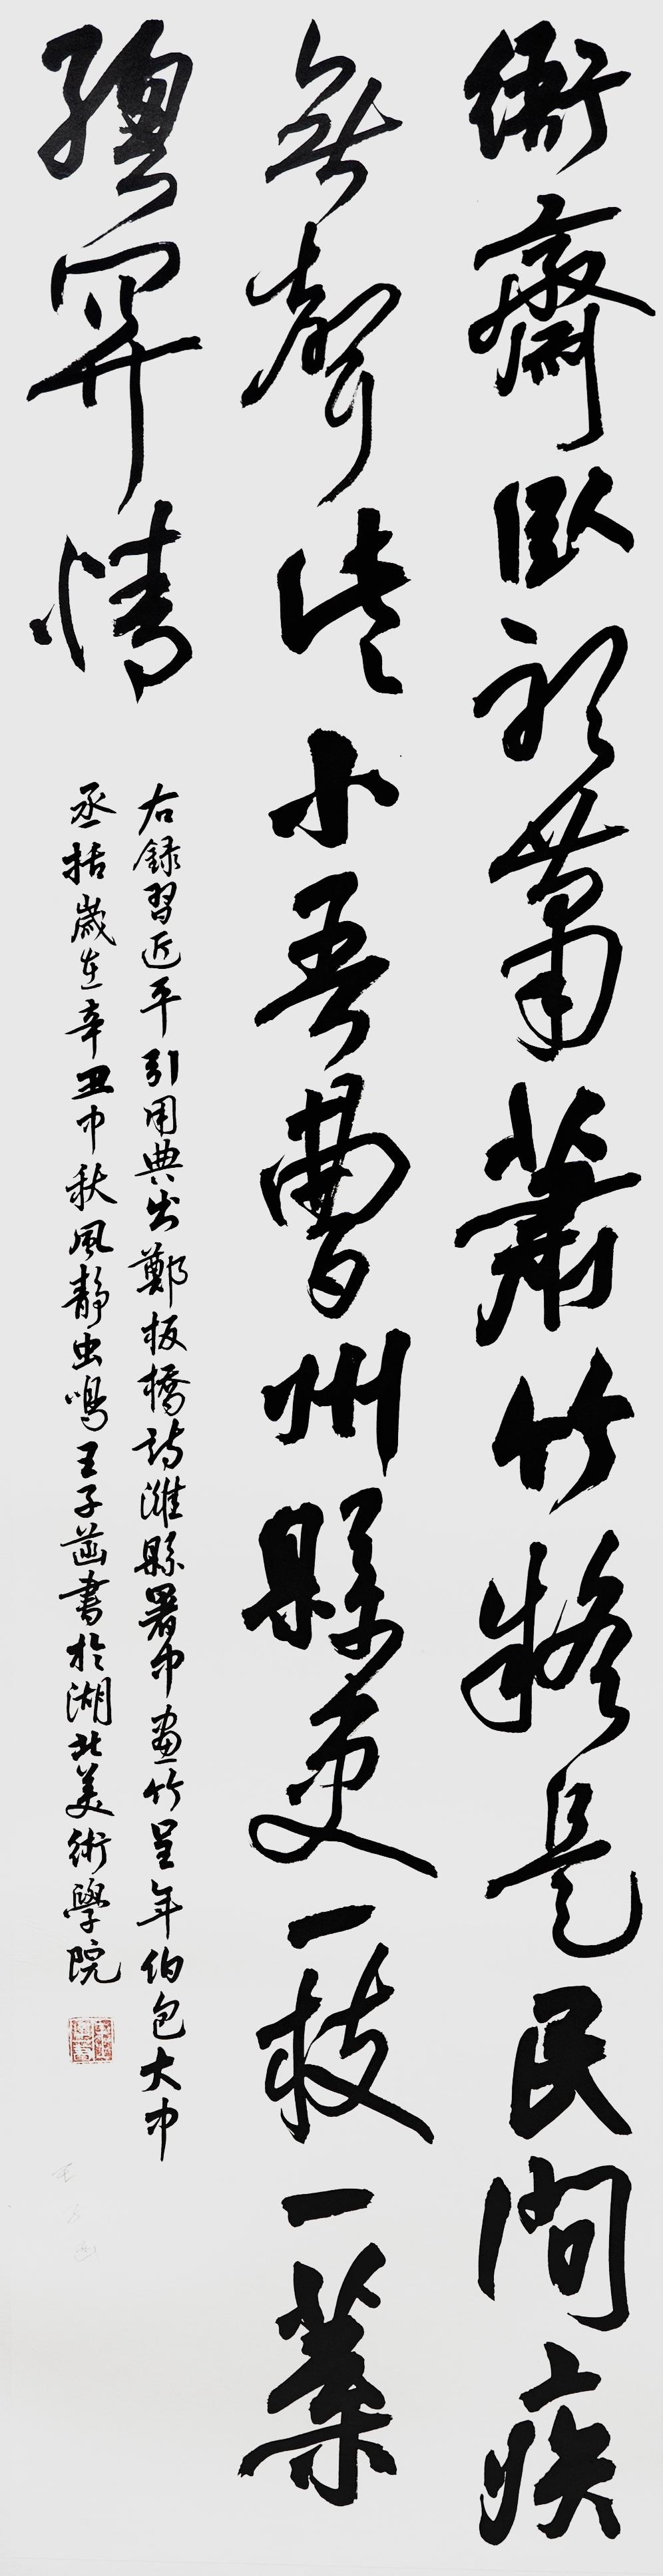 衙齋臥聽蕭蕭竹疑是民間疾
苦聲些小吾曹州縣吏一枝一葉
總關情
右錄習近平引用典出鄭板橋詩濰縣署中畫竹呈年伯包大中
丞括歲在辛丑中秋風靜虫鳴王子菡書於湖北美術學院